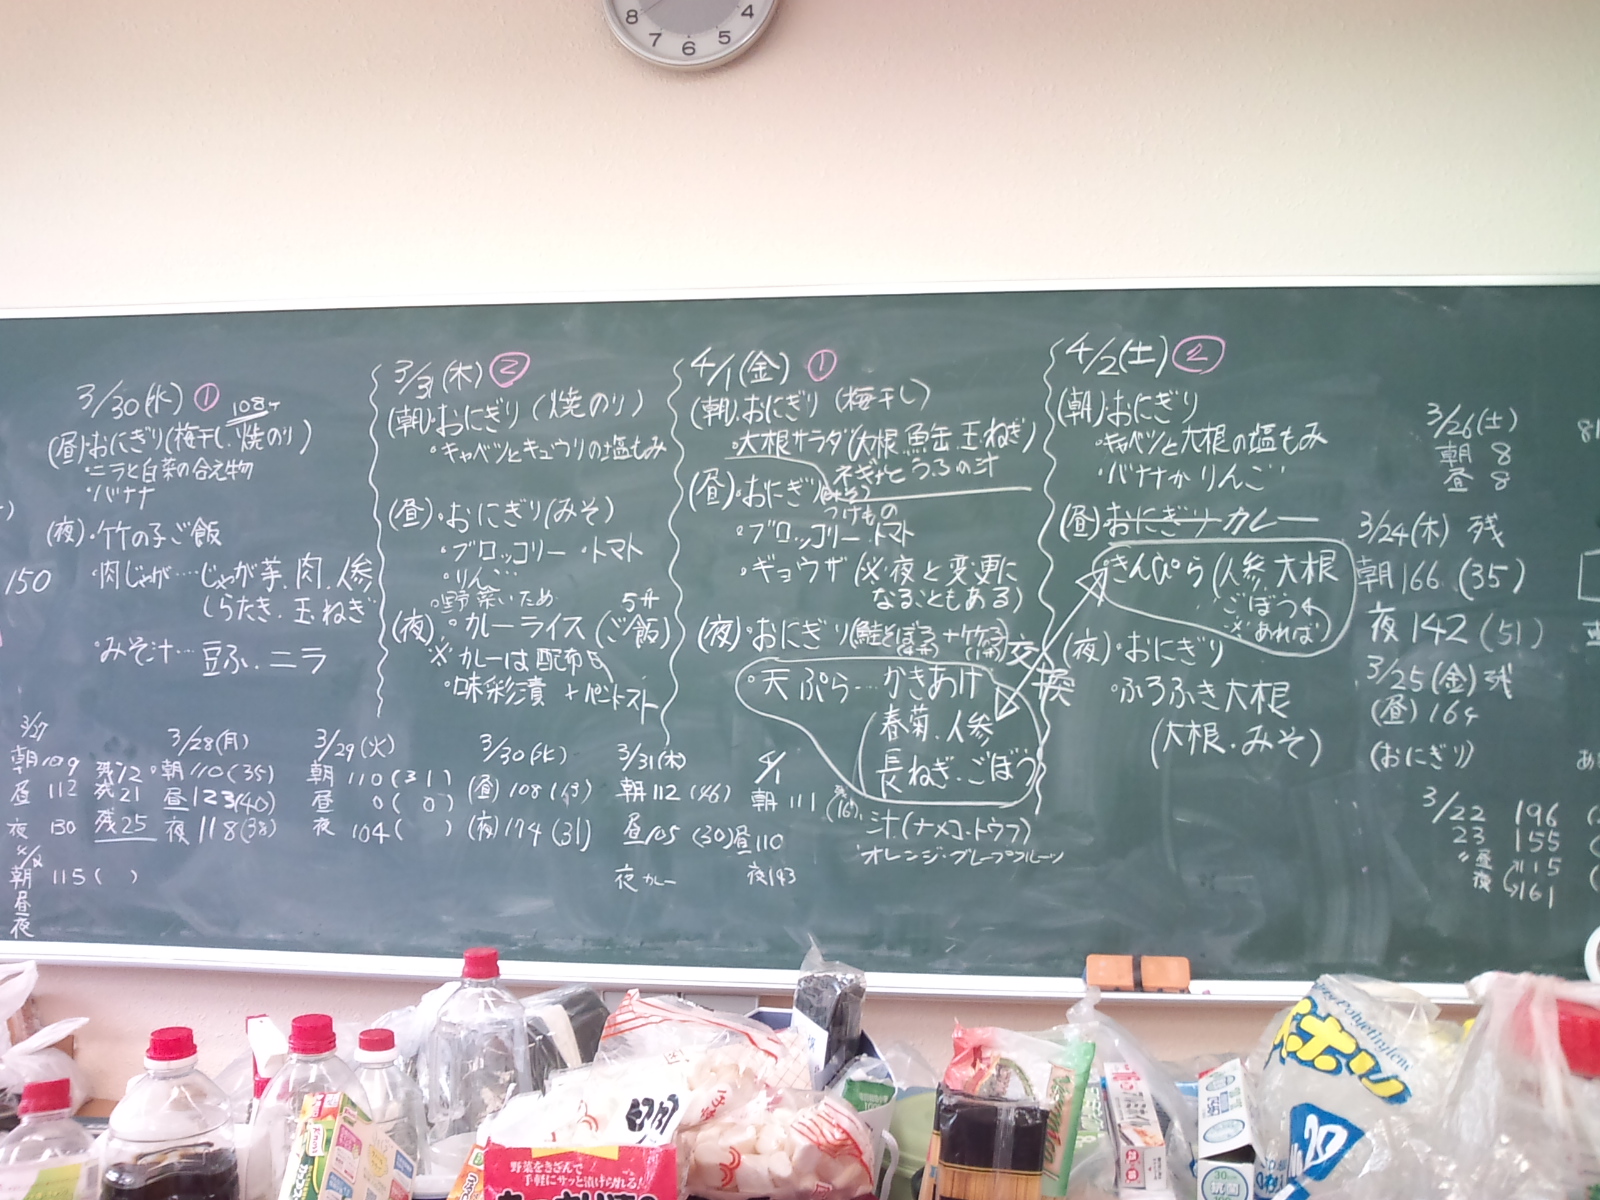 8 7 6 5 4
3/30(水) ①
108ケ
(昼)・おにぎり(梅干し、焼のり)
・ニラと白菜の合え物
・バナナ
(夜)・竹の子ご飯
・肉じゃが…じゃが芋.肉.人参
しらたき.玉ねぎ
・みそ汁…豆ふ.ニラ
150
3/31(木) ②
(朝)・おにぎり(焼のり)
・キャベツとキュウリの塩もみ
(昼)・おにぎり(みそ)
・ブロッコリー ・トマト
・りんご
・野菜いため
(夜)・カレーライス(ご飯)
※カレーは配布日
・味彩漬
4/1(金) ①
(朝)・おにぎり(梅干し)
・大根サラダ(大根.魚缶.玉ねぎ)
(昼)・おにぎり
つけもの
・ブロッコリー・トマト
・ギョウザ(※夜と変更に
なることもある)
(夜)・おにぎり
・天ぷら…かきあげ
春菊.人参
長ねぎ.ごぼう
汁(ナメコ.トウフ)
オレンジ・グレープフルーツ
交換
4/2(土) ②
(朝)・おにぎり
・キャベツと大根の塩もみ
・バナナかりんご
(昼)・おにぎり カレー
・きんぴら(人参.大根
ごぼう
※あれば)
(夜)・おにぎり
・ふろふき大根
(大根.みそ)
3/26(土)
朝 8
昼 8
3/24(木) 残
朝166 (35)
夜142 (51)
3/25(金)残
(昼)164
(おにぎり)
3/22 196
23 155
〃昼 115
夜 161
3/27
朝109 残12
昼 112 残21
夜 130 残25
朝 115( )
昼
夜
3/28(月)
朝110(35)
昼123(40)
夜118(38)
3/29(火)
朝 110(31)
昼 0(0)
夜 104( )
3/30(水)
(昼) 108
(夜)174(31)
3/31(木)
朝112(46)
昼105(30)
夜カレー
4/1
朝 111
昼110
夜143
野菜をきざんで
手軽にサッと漬けられる!
20